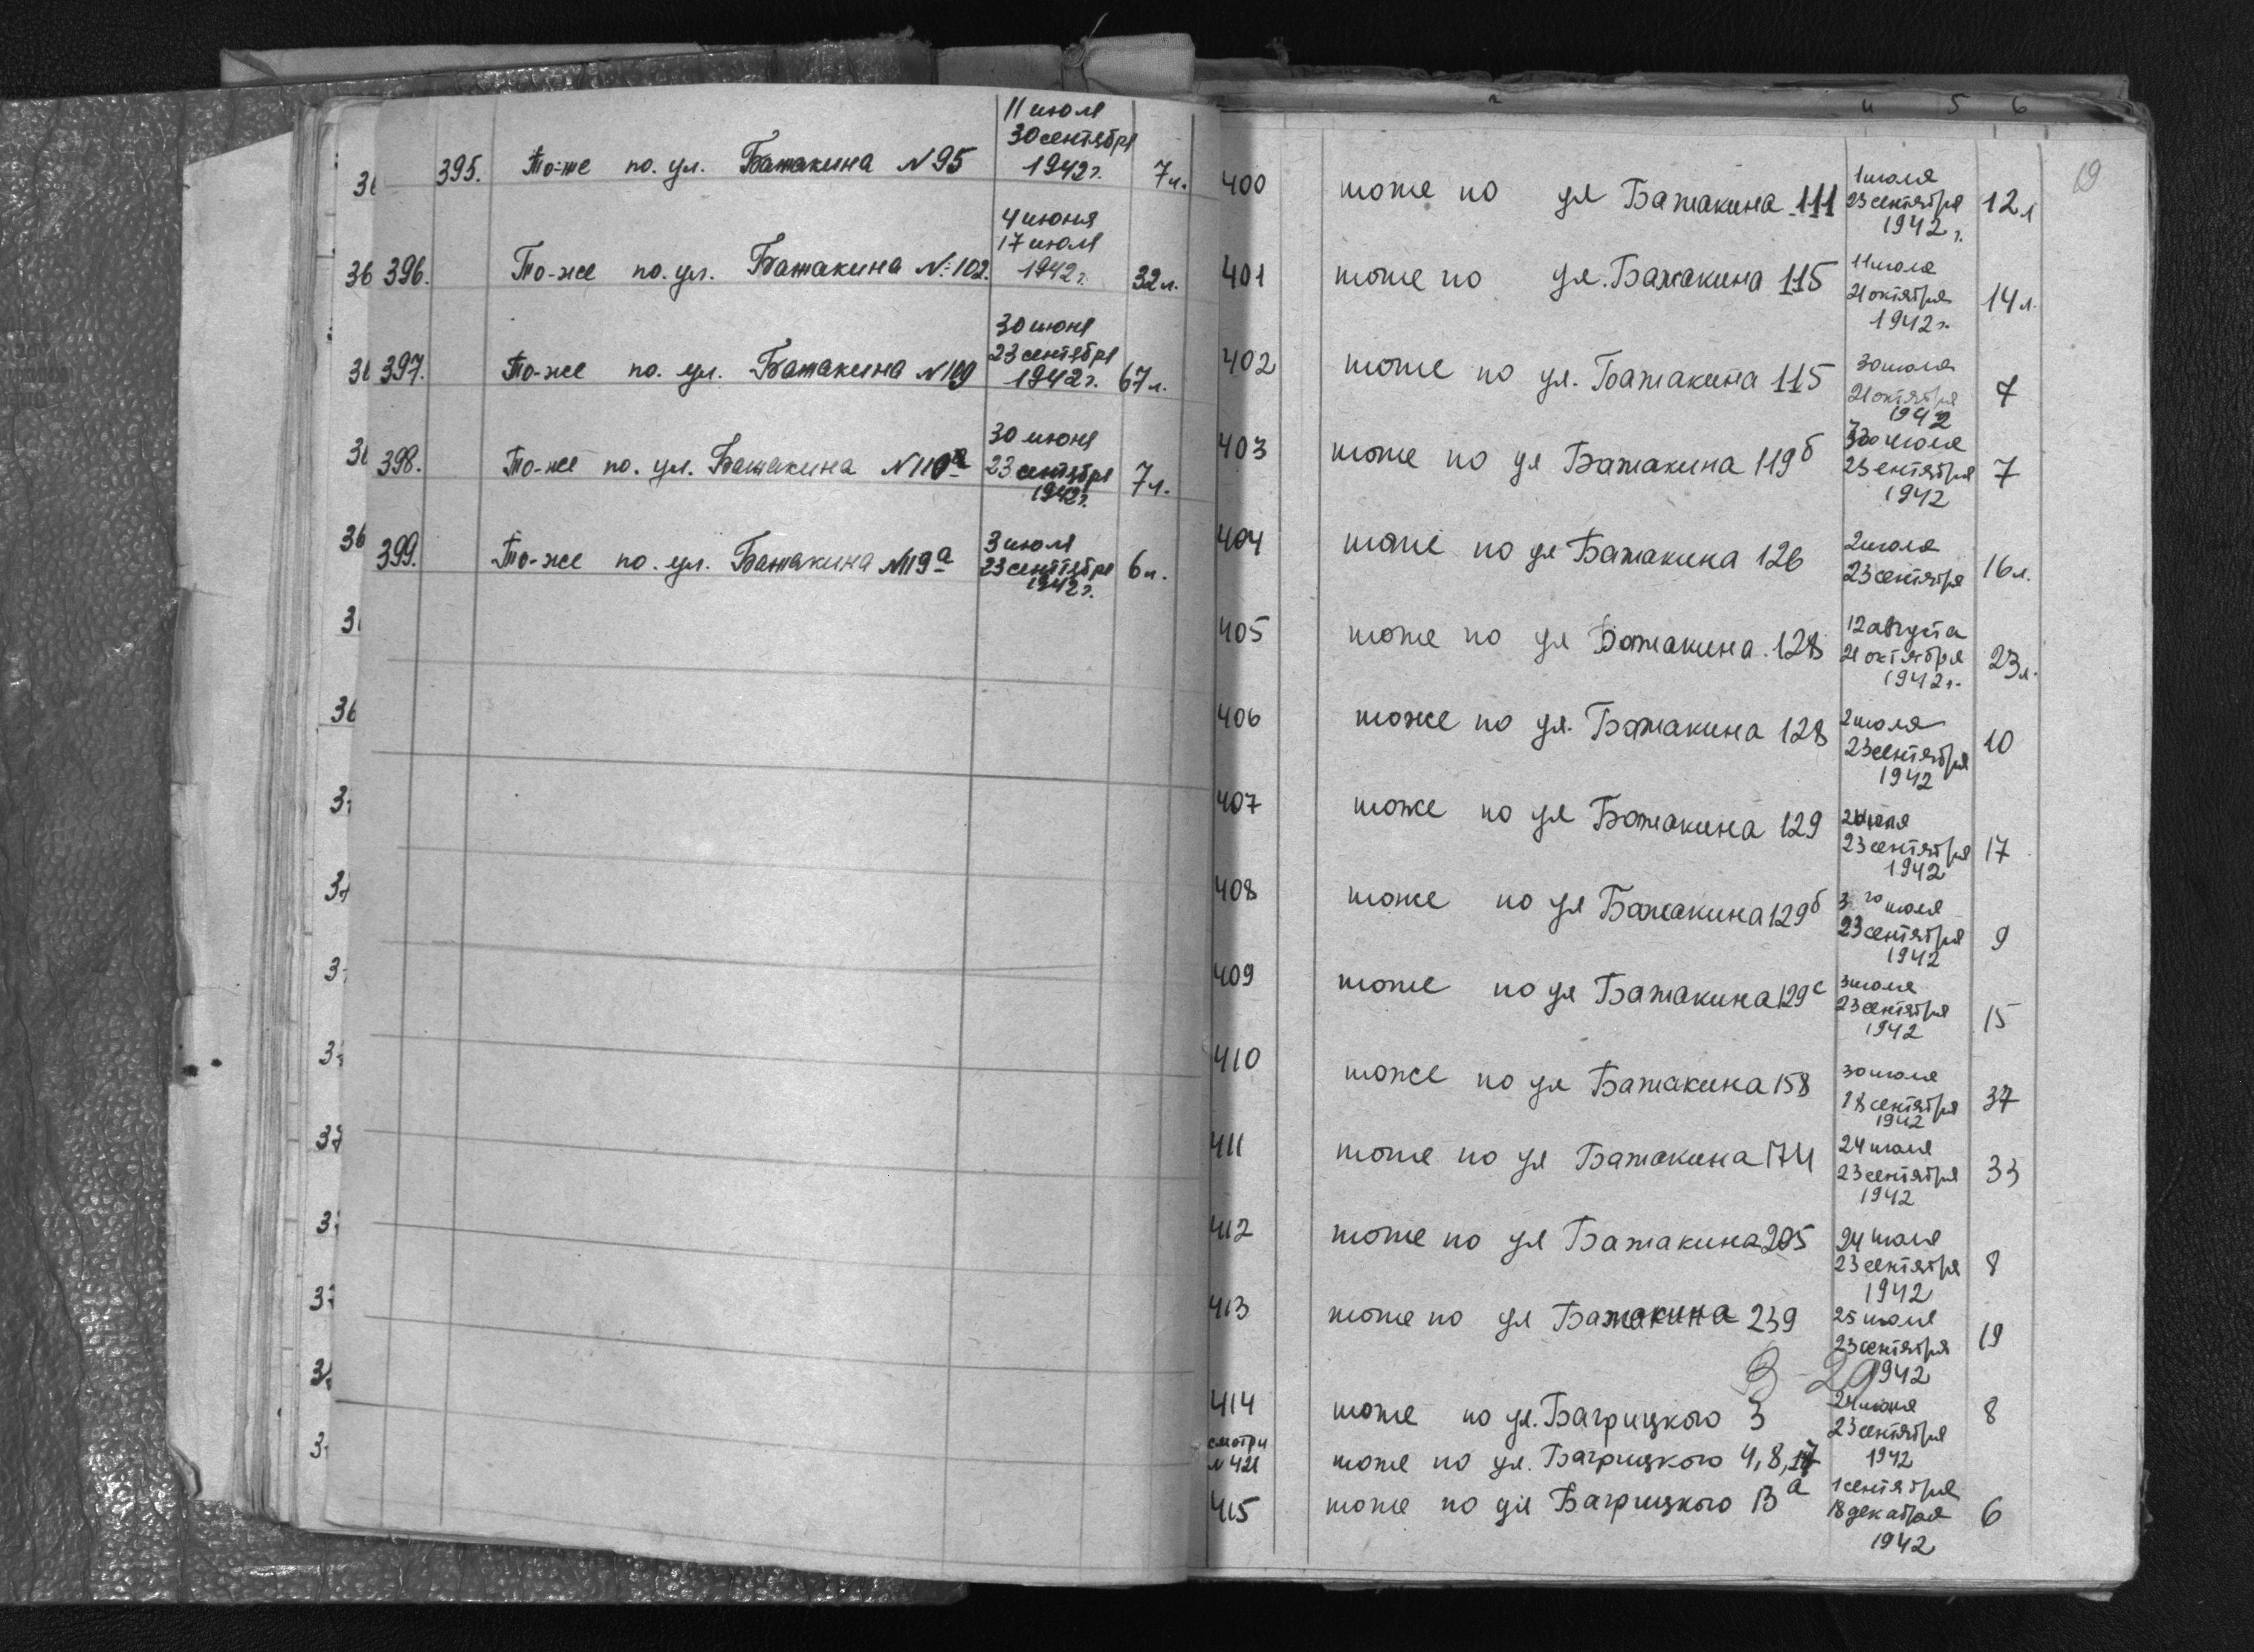 11 июля
30 сентября
395. То-же по. ул. Батакина N 95 1942 г. 7 л.
4 июня
17 июля
396. То-же по. ул. Батакина №: 102. 1942 г. 32 л.
30 июня
23 сентября
397. То-же по. ул. Батакина N 119 1942 г. 67 л.
30 июня
398. То-же по. ул. Батакина N 119а 23 сентября 7 л.
1942 г.
3 июля
399. То-же по. ул. Батакина N 119а 23 сентября 6 л.
1942 г.
4 5 6
19
1 июля
400 тоже по ул Батакина 111 23 сентября 12 л
1942 г.
11 июля
401 тоже по ул. Батакина 115 21 октября 14 л.
1942 г.
402 тоже по ул. Батакина 115 30 июля
21 октября 7
1942
403 тоже по ул Батакина 119б июля
23 сентября 7
1942
404 тоже по ул Батакина 126 2 июля
23 сентября 16 л.
405 тоже по ул Батакина. 128 12 августа
21 октября 23 л.
1942 г.
406 тоже по ул. Батакина 128 2 июля
23 сентября 10
1942
407 тоже по ул Батакина 129 июля
23 сентября 17
1942
408 тоже по ул Батакина 129б 3го июля
23 сентября 9
1942
409 тоже по ул Батакина 129с 3 июля
23 сентября 15
1942
410 тоже по ул Батакина 158 30 июля
18 сентября 37
1942
411 тоже по ул Батакина 174 24 июля
23 сентября 33
1942
412 тоже по ул Батакина 205 24 июля
23 сентября 8
1942
413 тоже по ул Батакина 239 25 июля
23 сентября 19
1942
414 тоже по ул. Багрицкого 3 24 июня 8
23 сентября
смотри
N 421 тоже по ул. Багрицкого 4, 8, 17 1942
415 тоже по ул Багрицкого 13а 1 сентября
18 декабря 6
1942